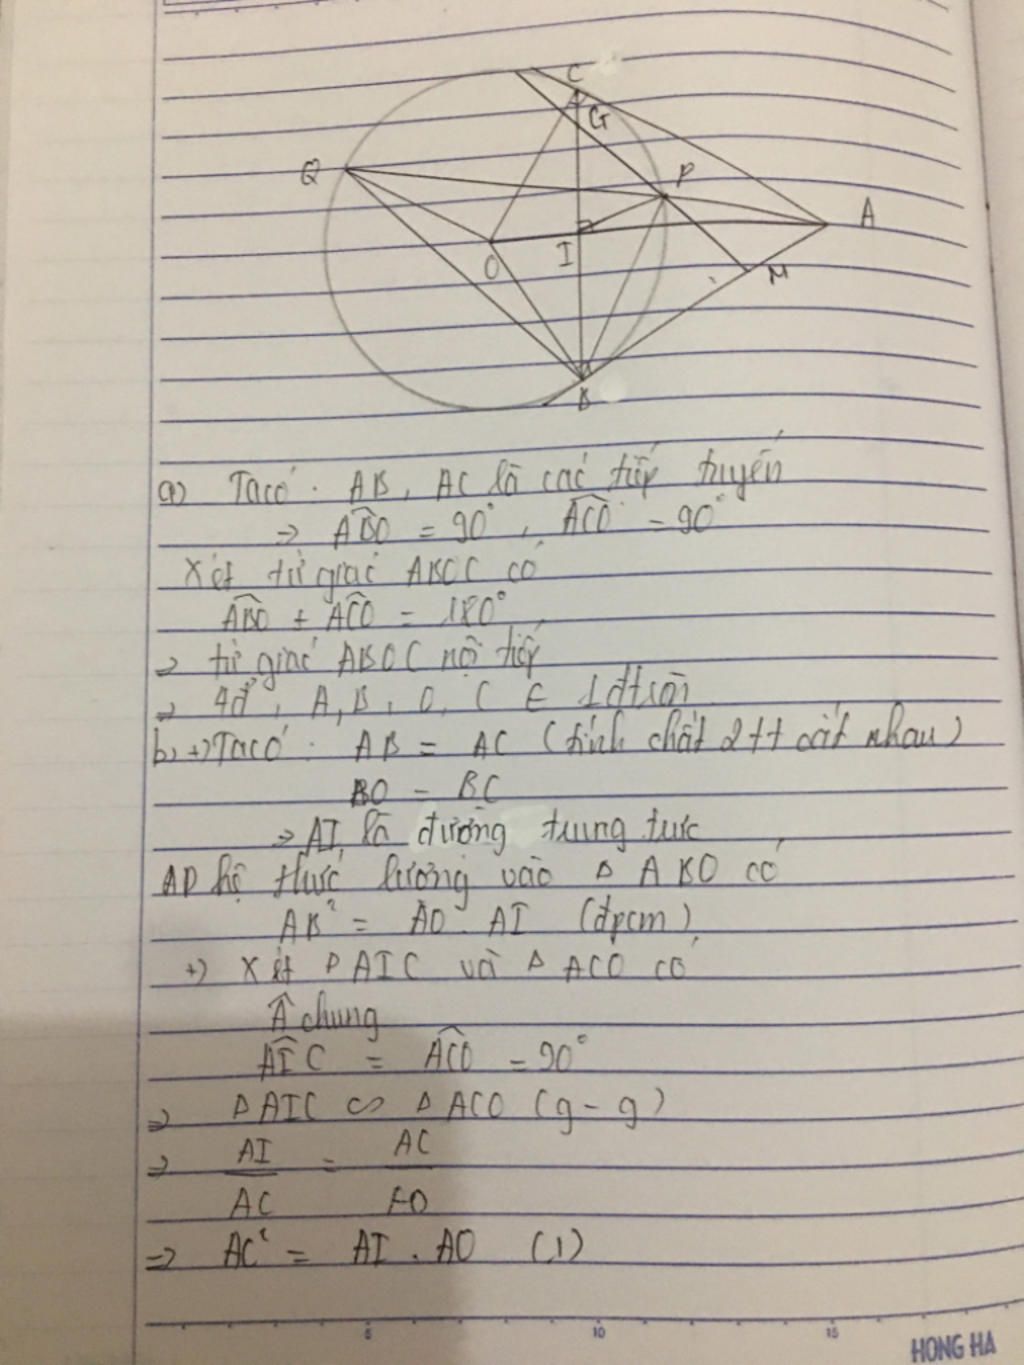 C
G
Q
P
A
O
I
M
B
a) Ta có : AB, AC là các tiếp tuyến
⇒ ABO = 90°, ACO = 90°
Xét tứ giác ABOC có
ABO + ACO = 180°
⇒ tứ giác ABOC nội tiếp
⇒ 4đ', A, B, O, C ∈ 1 đtròn
b) +) Ta có : AB = AC (tính chất 2tt cắt nhau)
BO = BC
⇒ AI là đường trung trực
AD hệ thức lượng vào Δ ABO có
AB² = AO . AI (đpcm)
+) Xét Δ AIC và Δ ACO có
Â chung
AIC = ACO = 90°
⇒ Δ AIC ∽ Δ ACO (g-g)
⇒ AI/AC = AC/AO
⇒ AC² = AI . AO (1)
5 10 15
HONG HA